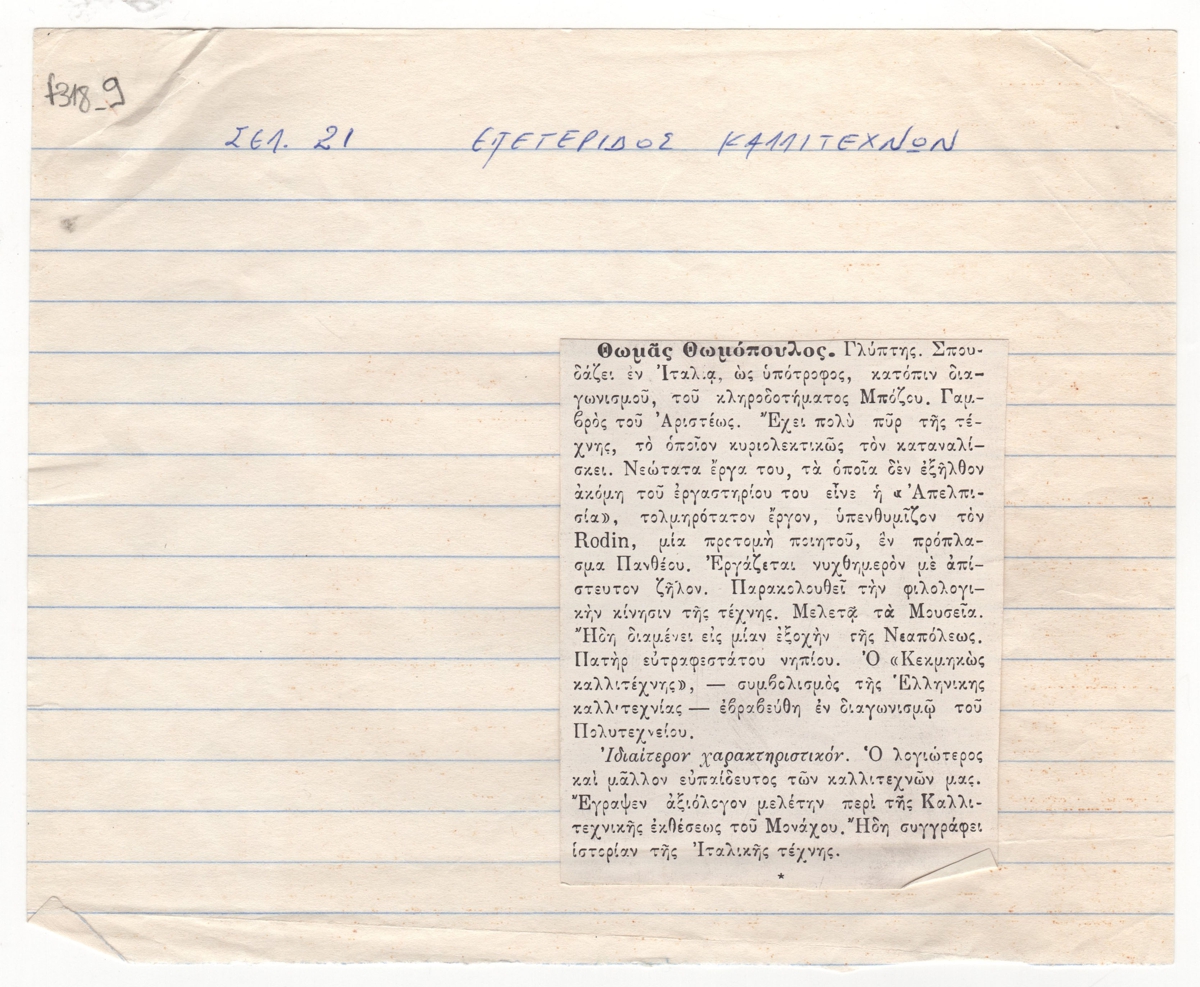 f318_9
ΣΕΛ. 21 ΕΠΕΤΕΡΙΔΟΣ ΚΑΛΛΙΤΕΧΝΩΝ
Θωμᾶς Θωμόπουλος. Γλύπτης. Σπου-
δάζει ἐν Ἰταλίᾳ, ὡς ὑπότροφος, κατόπιν δια-
γωνισμοῦ, τοῦ κληροδοτήματος Μπόζου. Γαμ-
βρὸς τοῦ Ἀριστέως. Ἔχει πολὺ πῦρ τῆς τέ-
χνης, τὸ ὁποῖον κυριολεκτικῶς τὸν καταναλί-
σκει. Νεώτατα ἔργα του, τὰ ὁποῖα δὲν ἐξῆλθον
ἀκόμη τοῦ ἐργαστηρίου του εἶνε ἡ «Ἀπελπι-
σία», τολμηρότατον ἔργον, ὑπενθυμῖζον τὸν
Rodin, μία προτομὴ ποιητοῦ, ἓν πρόπλα-
σμα Πανθέου. Ἐργάζεται νυχθημερὸν μὲ ἀπί-
στευτον ζῆλον. Παρακολουθεῖ τὴν φιλολογι-
κὴν κίνησιν τῆς τέχνης. Μελετᾷ τὰ Μουσεῖα.
Ἤδη διαμένει εἰς μίαν ἐξοχὴν τῆς Νεαπόλεως.
Πατὴρ εὐτραφεστάτου νηπίου. Ὁ «Κεκμηκὼς
καλλιτέχνης», — συμβολισμὸς τῆς Ἑλληνικης
καλλιτεχνίας — ἐβραβεύθη ἐν διαγωνισμῷ τοῦ
Πολυτεχνείου.
Ἰδιαίτερον χαρακτηριστικόν. Ὁ λογιώτερος
καὶ μᾶλλον εὐπαίδευτος τῶν καλλιτεχνῶν μας.
Ἔγραψεν ἀξιόλογον μελέτην περὶ τῆς Καλλι-
τεχνικῆς ἐκθέσεως τοῦ Μονάχου. Ἤδη συγγράφει
ἱστορίαν τῆς Ἰταλικῆς τέχνης.
*